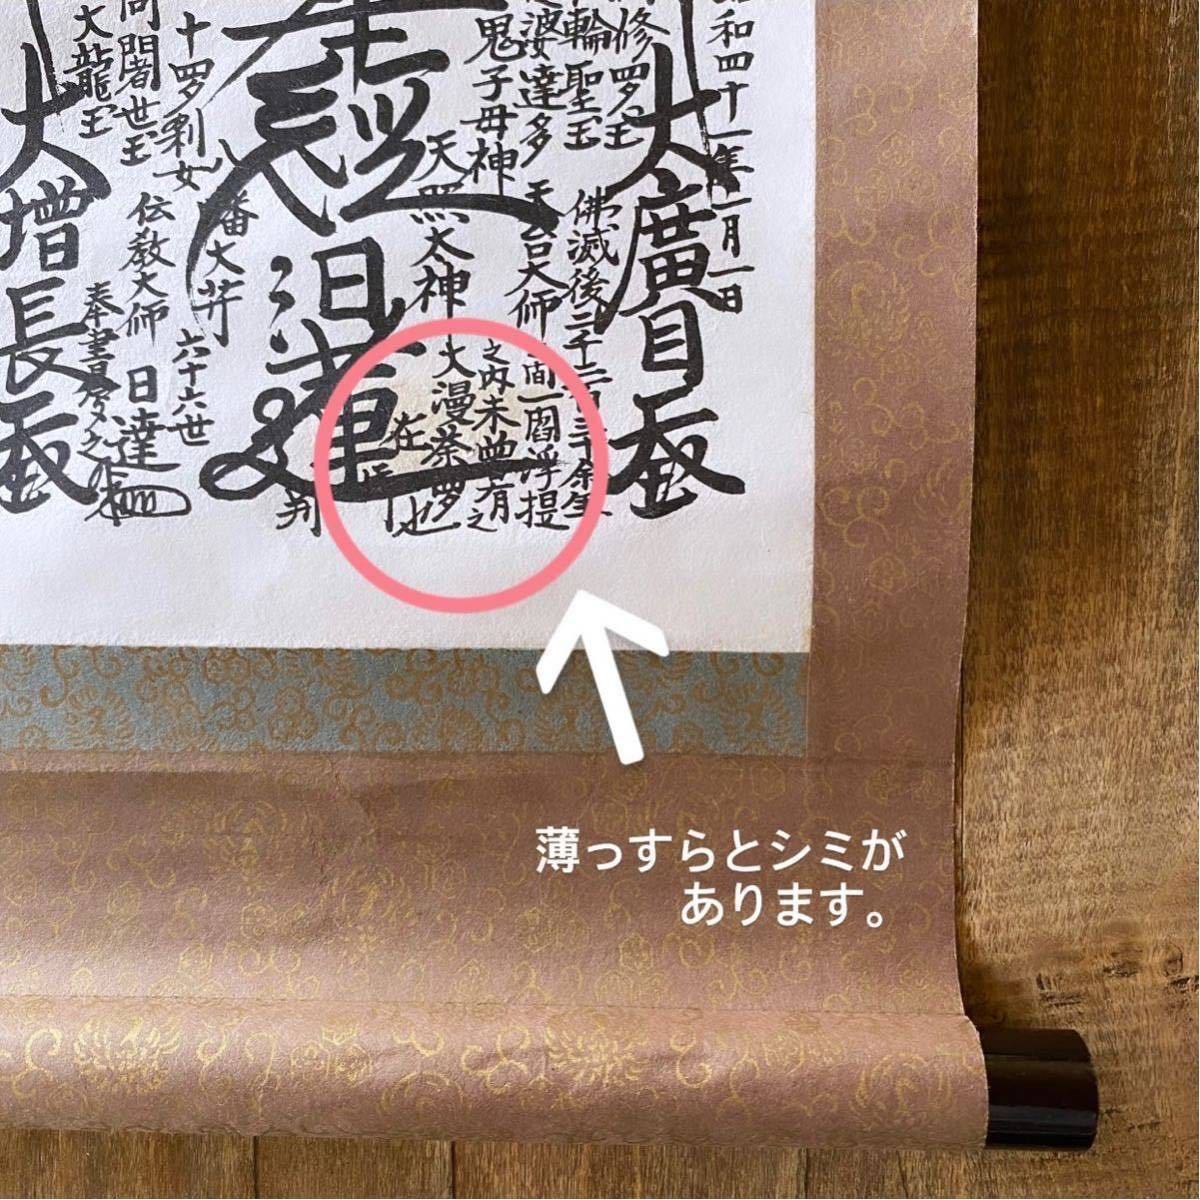 昭和四十一年一月一日
大廣目天
阿修羅王
佛滅後二千二百三十余年
転輪聖王
天台大師
之間一閻浮提
提婆達多
之内未曽有之
鬼子母神
天照太神
大漫荼羅
也
在
経
日蓮
判
八幡大菩
十羅刹女
六十六世
日達
阿闍世王
伝教大師
大龍王
奉書写之
大増長天
薄っすらとシミが
あります。